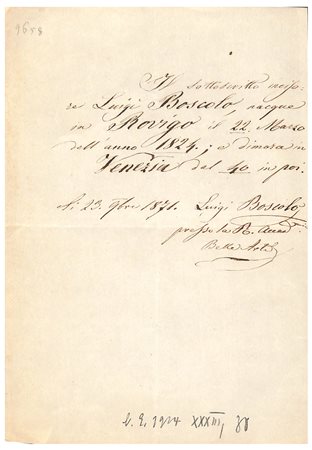 9658
Il sottoscritto
re Luigi Boscolo, nacque
in Rovigo il 22 Marzo
dell'anno 1824; e dimora in
Venezia dal 40 in poi.
Li 23. 9bre 1871. Luigi Boscolo,
presso la R. Accad:
Belle Arti
b. E. 1924 XXXIII,